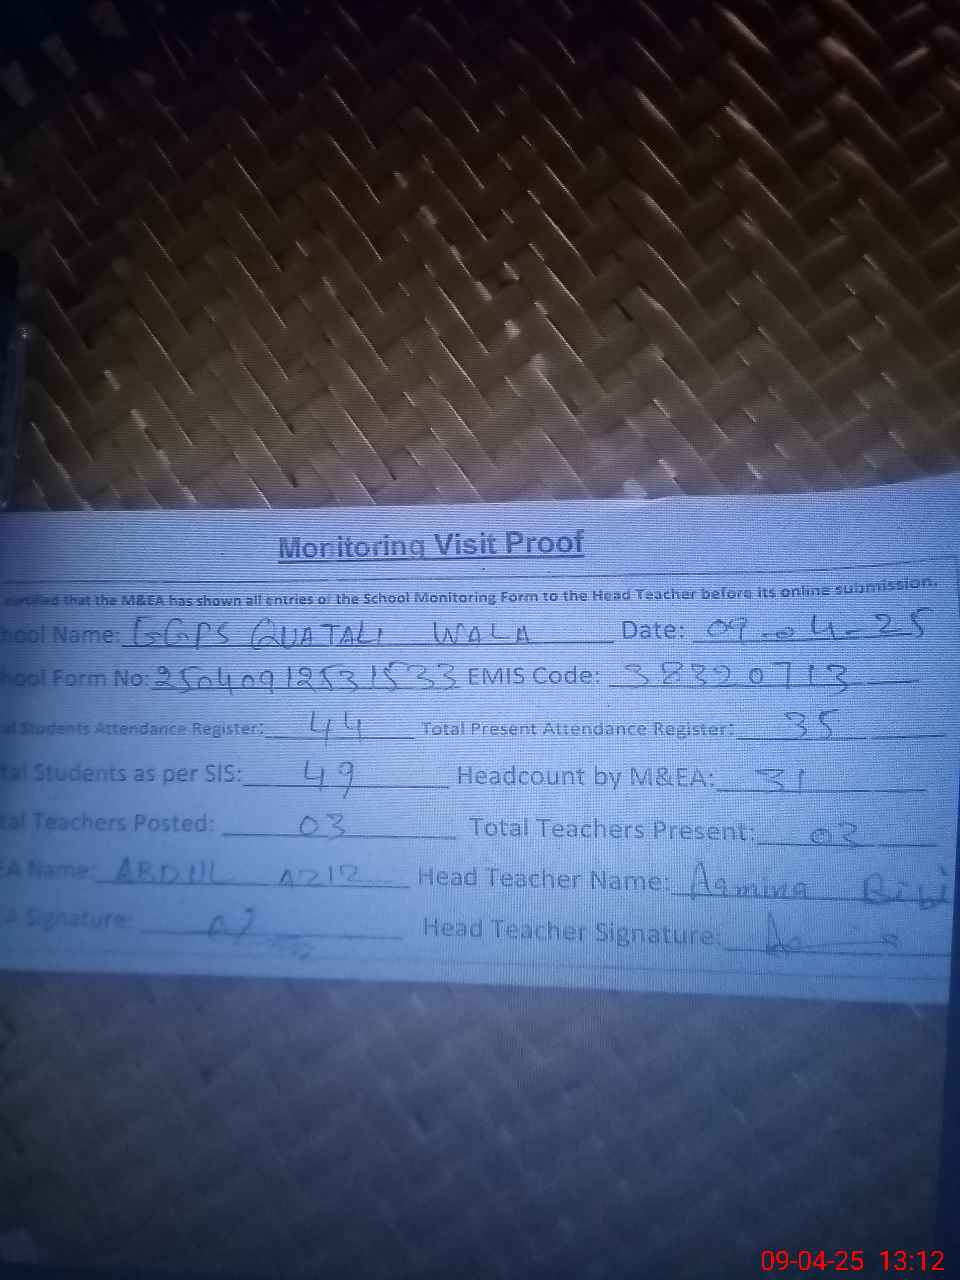 Monitoring Visit Proof
certified that the M&EA has shown all entries of the School Monitoring Form to the Head Teacher before its online submission.
hool Name: GGPS QUATALI WALA Date: 09-04-25
hool Form No: 25040912531533 EMIS Code: 38320713
al Students Attendance Register: 44 Total Present Attendance Register: 35
tal Students as per SIS: 49 Headcount by M&EA: 31
tal Teachers Posted: 03 Total Teachers Present: 03
EA Name: ABDUL AZIZ Head Teacher Name: Aamina Bibi
A Signature: Head Teacher Signature:
09-04-25 13:12